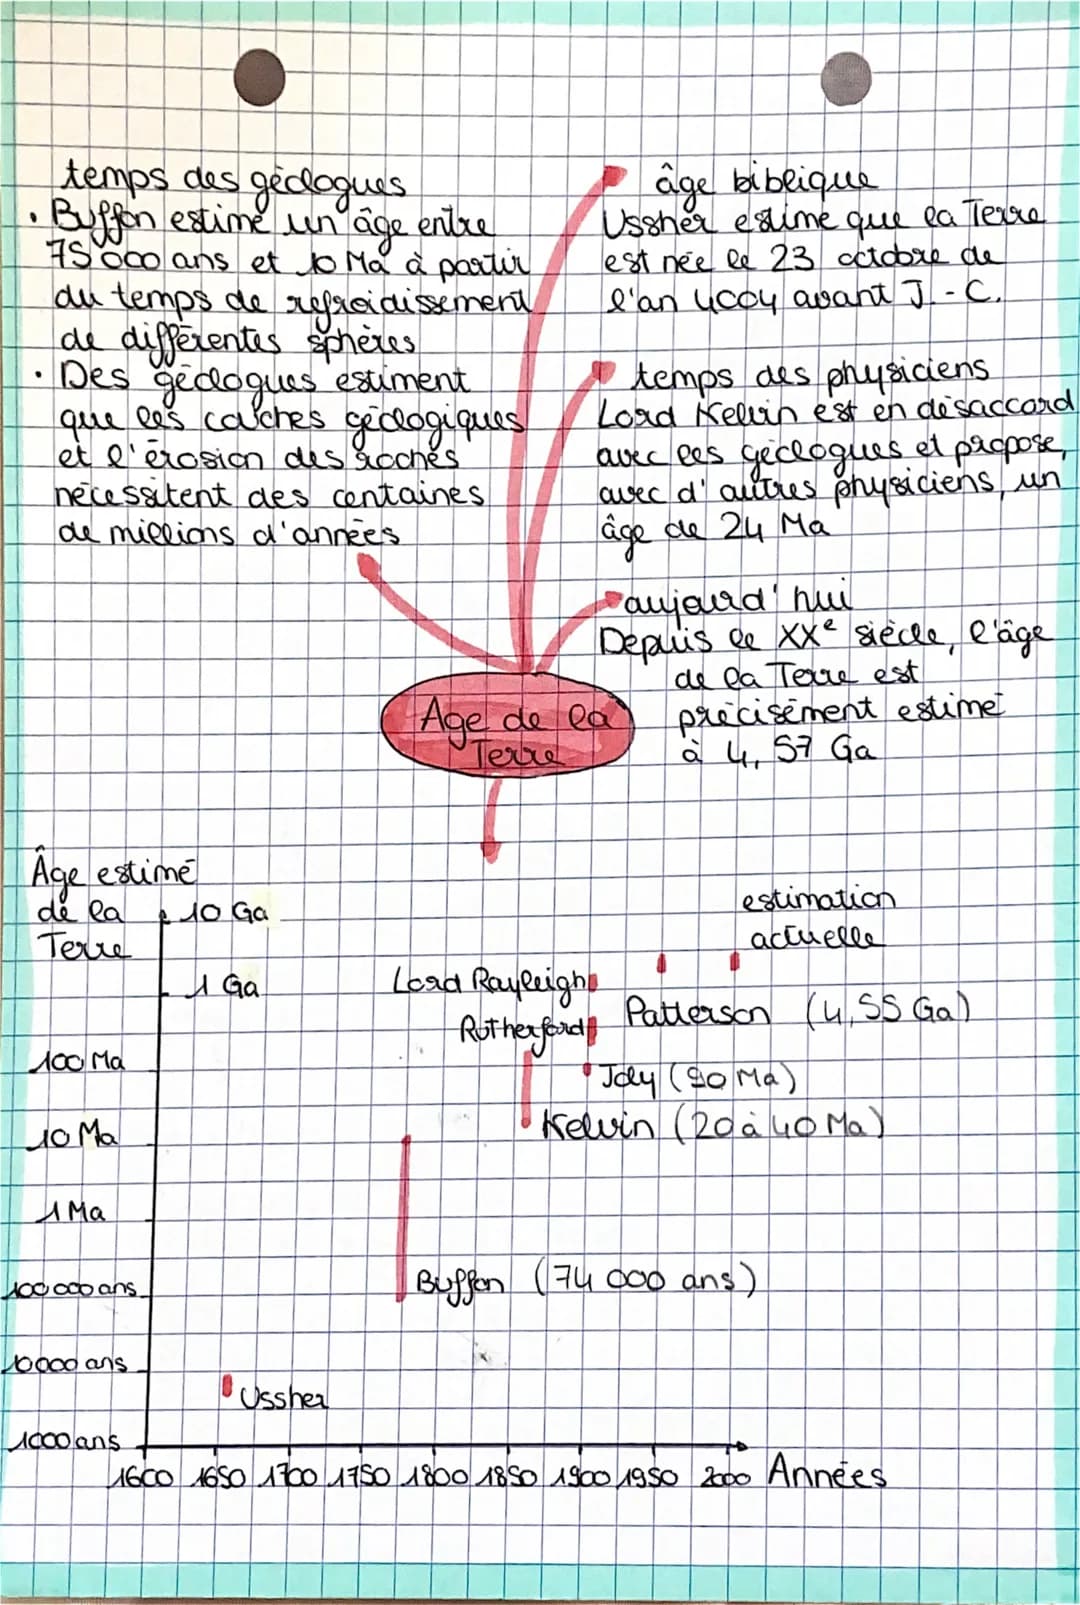 temps des géologues
• Buffon estime un âge entre
75 000 ans et 10 Ma à partir
du temps de refroidissement
de différentes sphères
• Des géologues estiment
que les couches géologiques
et l'érosion des roches
nécessitent des centaines
de millions d'années
âge biblique
Ussher estime que la Terre
est née le 23 octobre de
l'an 4004 avant J.-C.
temps des physiciens
Lord Kelvin est en désaccord
avec les géologues et propose,
avec d'autres physiciens, un
âge de 24 Ma
aujourd'hui
Depuis le XXe siècle, l'âge
de la Terre est
précisément estimé
à 4,57 Ga
Age de la
Terre
Âge estimé
de la
Terre
10 Ga
1 Ga
100 Ma
10 Ma
1 Ma
100 000 ans
10 000 ans
1000 ans
estimation
actuelle
Lord Rayleigh
Rutherford
Patterson (4,55 Ga)
Joly (90 Ma)
Kelvin (20 à 40 Ma)
Buffon (74 000 ans)
Ussher
1600 1650 1700 1750 1800 1850 1900 1950 2000 Années